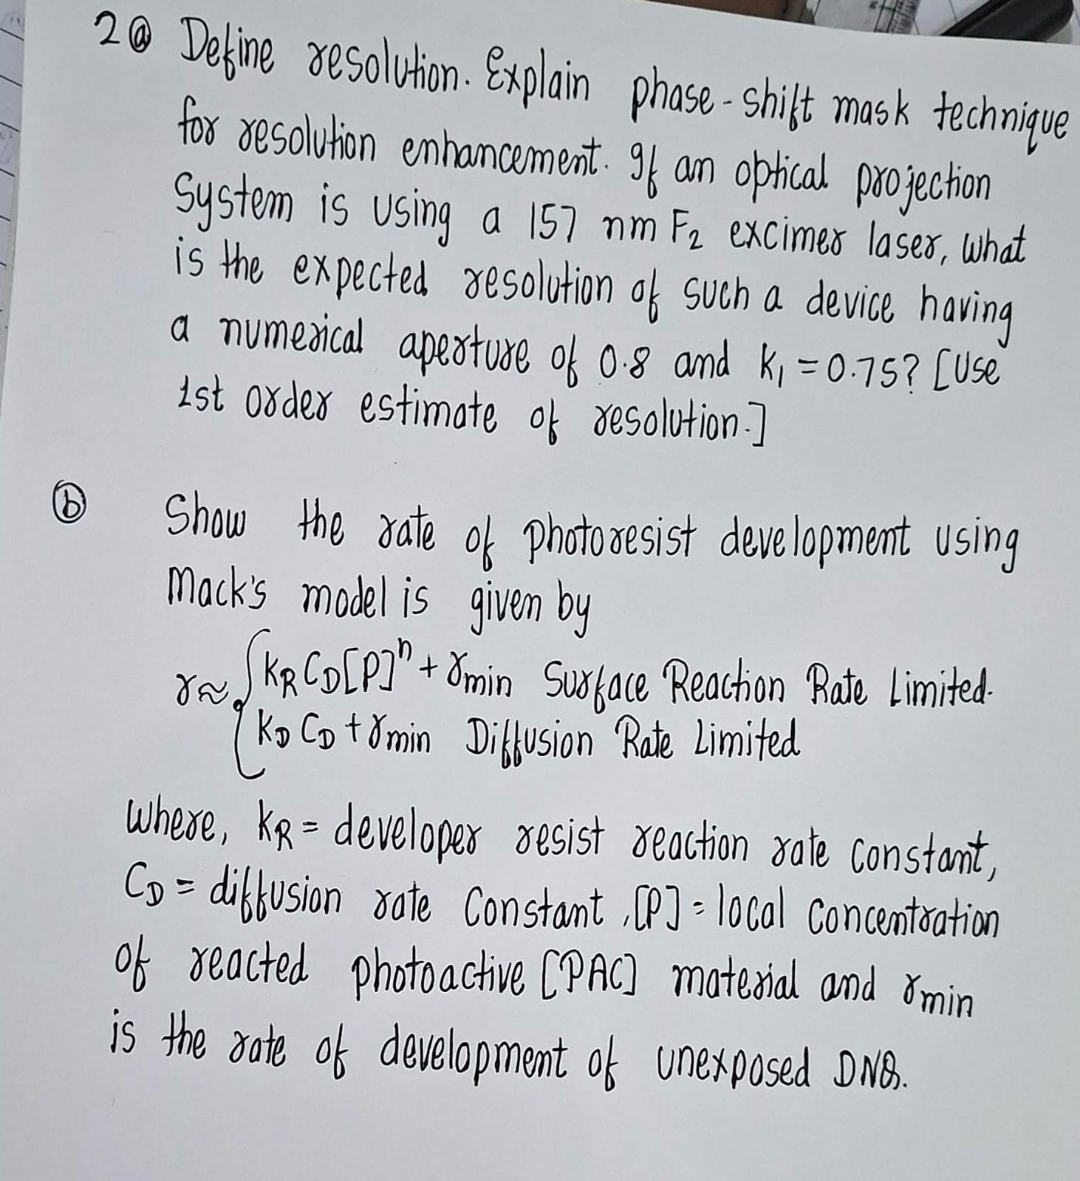 2ⓐ Define resolution. Explain phase-shift mask technique
for resolution enhancement. If an optical projection
System is using a 157 nm F₂ excimer laser, what
is the expected resolution of such a device having
a numerical aperture of 0.8 and K₁ = 0.75? [Use
1st order estimate of resolution.]
ⓑ Show the rate of photoresist development using
Mack's model is given by
r ≈ { K_R C_D [P]ⁿ + r_min Surface Reaction Rate Limited.
K_D C_D + r_min Diffusion Rate Limited
Where, K_R = developer resist reaction rate constant,
C_D = diffusion rate Constant, [P] = local Concentration
of reacted photoactive [PAC] material and r_min
is the rate of development of unexposed DNQ.